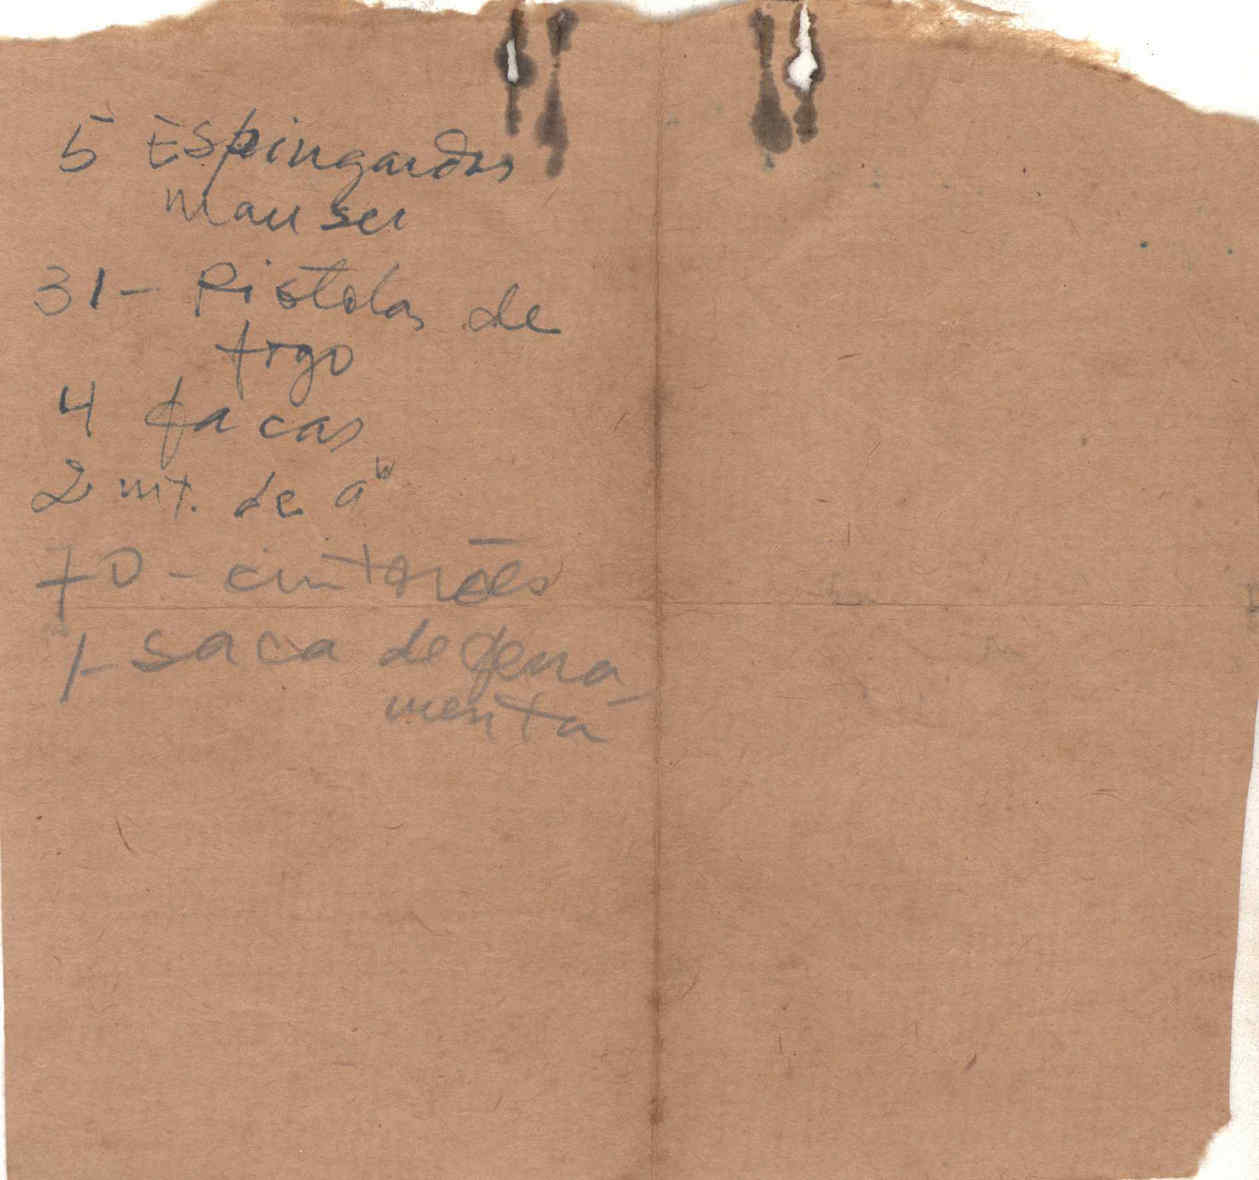 5 Espingardas
Mauser
31 - Pistolas de
fogo
4 facas
2 mt. de
70 - cinturões
1 - saca de ferra
menta